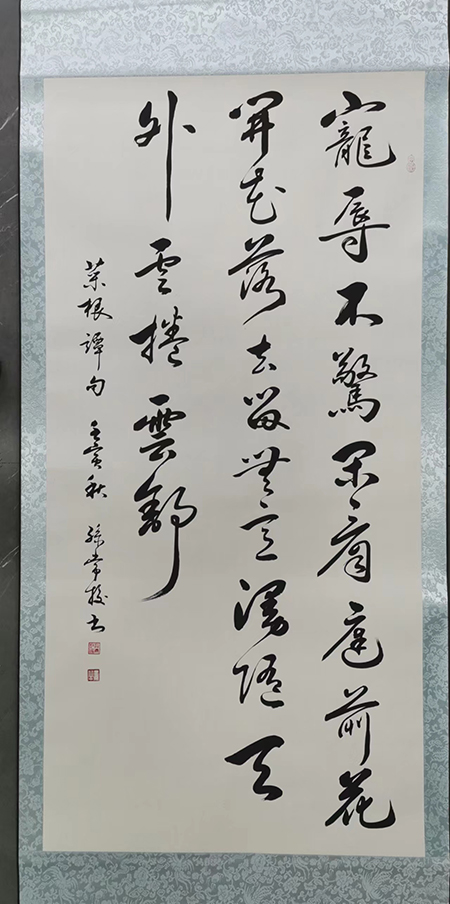 寵辱不驚閑看庭前花
開花落去留無意漫隨天
外雲捲雲舒
菜根譚句 壬寅秋 孫常书